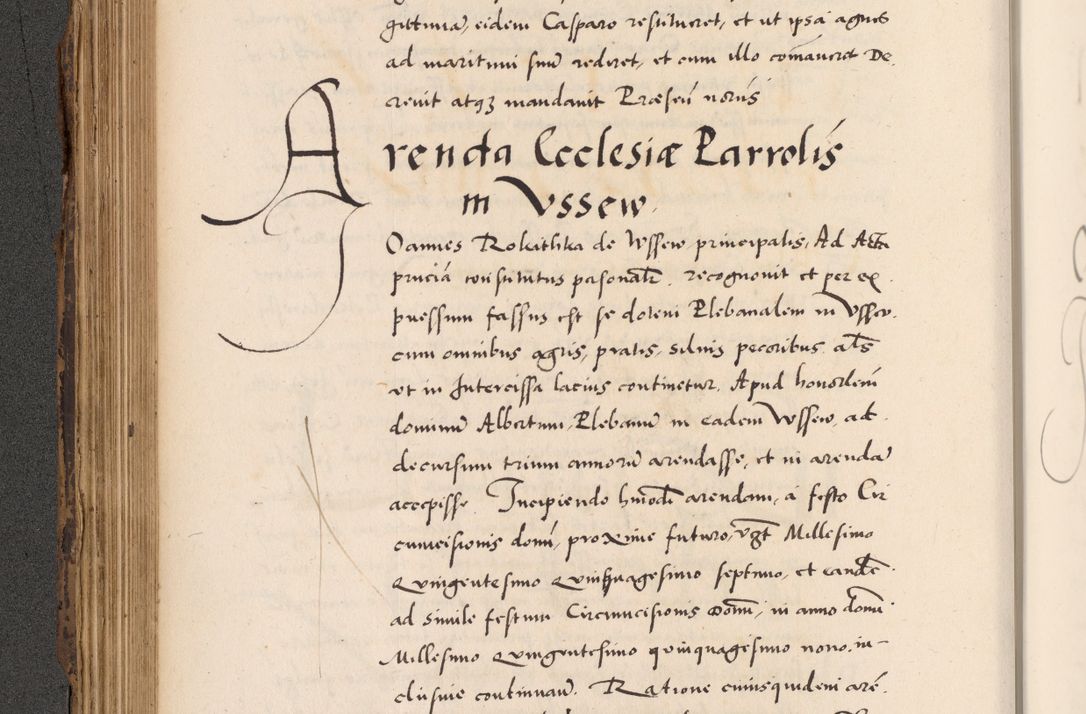 gittimā, eidem Casparo restitueret, et ut ipsa agnes
ad maritum suū rediret, et cum illo cōmaneret De
crevit atqȝ mandavit Præsen̄ nōrūs
Arenda Ecclesiæ Parrolīs
in Vssew
Joannes Rokithka de Wssew principalis, Ad Acta
prn̄ciā constitutus psonalr̄. recognovit et per ex
pressum fassus est se dotem Plebanalem in Vssew.
cum omnibus agris, pratis, silvis pecoribus al̄s
ut in Intercissa lacius continetur. Apud honorlem̄
dominū Albertum, Plebanū in eadem Wssew, ad
decursum trium annorū arendasse, et in arendā
accepisse. Incipiendo hm̄odi arendam, a festo Cir
cumcisionis domī, proxime futuro, vgt̄ Millesimo
Quingentesimo Quinquagesimo septimo, et eandē
ad simile festum Circumcisionis Domī, in anno domī
Millesimo Quingentesimo quinquagesimo nono, in-
clusive continuan̄. Ratione cuiusquidem arē.